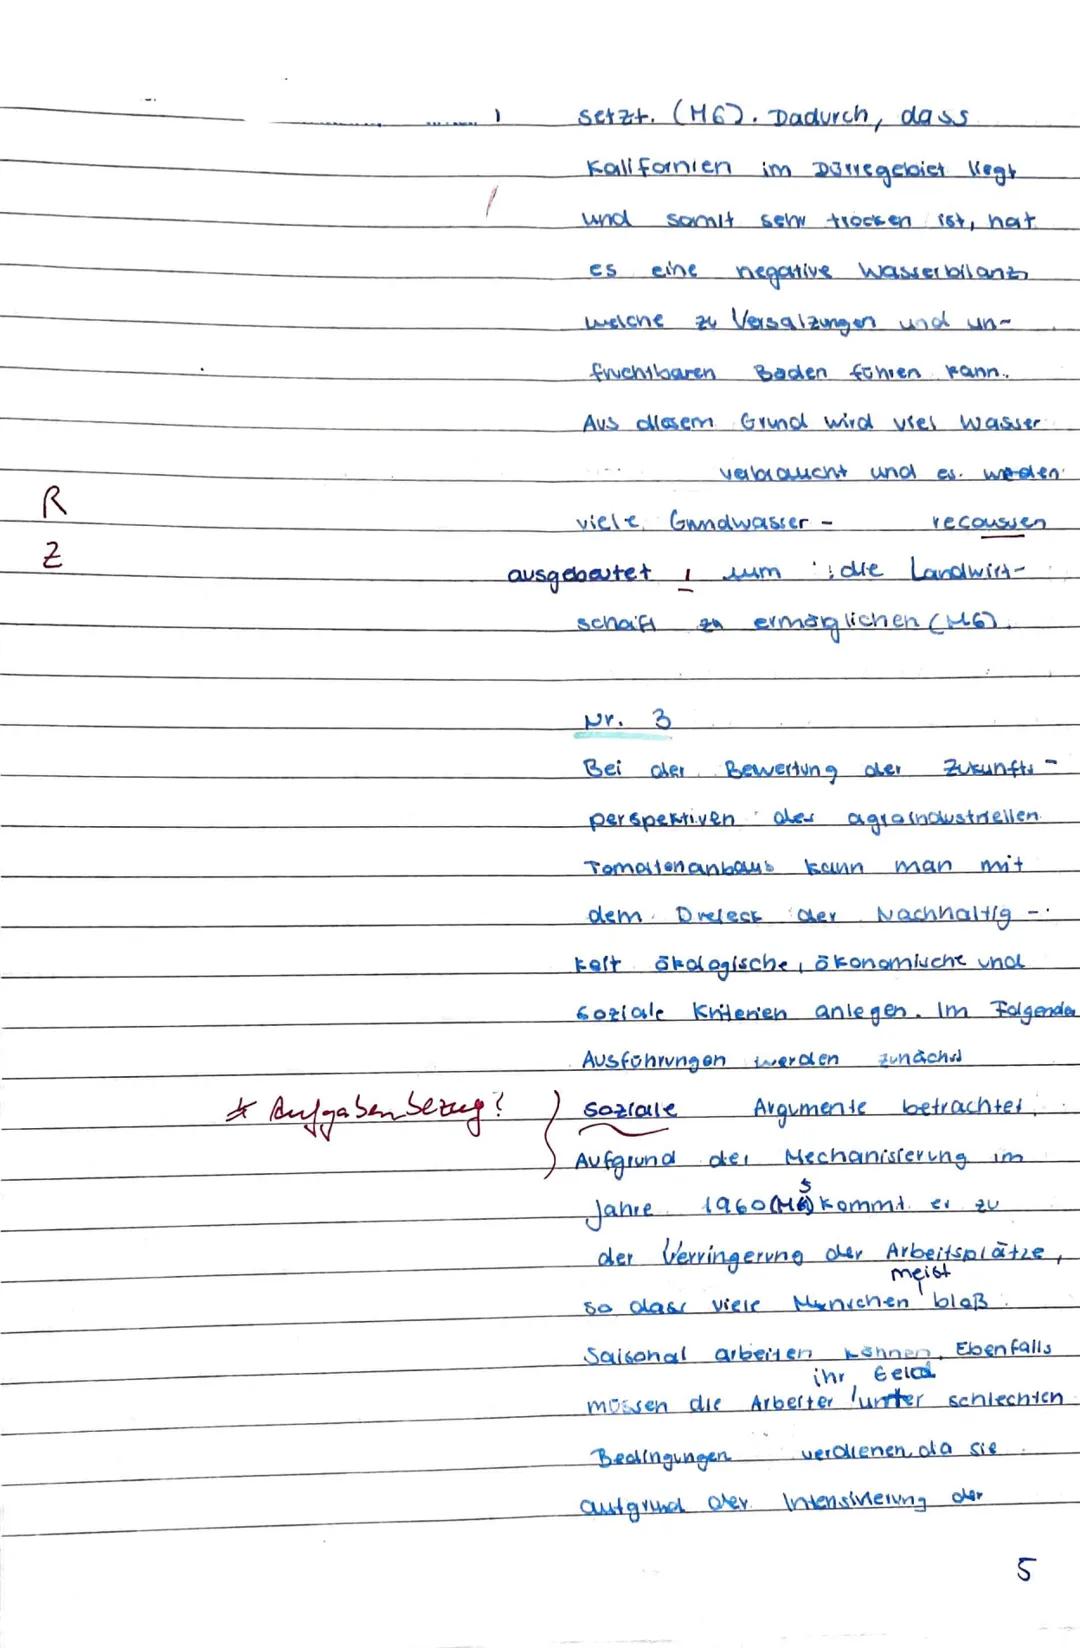 setzt. (M6). Dadurch, dass
Kalifornien im Dürregebiet liegt
und somit sehr trocken ist, hat
es eine negative Wasserbilanz
welche zu Versalzungen und un-
fruchtbaren Boden führen kann.
Aus diesem Grund wird viel Wasser
verbraucht und es werden
R viele Grundwasser - recoussen
Z ausgebeutet , um die Landwirt-
schaft zu ermöglichen (M6).
Nr. 3
Bei der Bewertung der Zukunfts-
perspektiven des agraindustriellen
Tomatenanbaus kann man mit
dem Dreieck der Nachhaltig-
keit ökologische, ökonomische und
soziale Kriterien anlegen. Im Folgenden
Ausführungen werden zunächst
* Aufgabenbezug? soziale Argumente betrachtet.
Aufgrund der Mechanisierung im
5
Jahre 1960 (M6) kommt er zu
der Verringerung der Arbeitsplätze,
meist
so dass viele Menschen bloß
saisonal arbeiten können. Ebenfalls
ihr Geld
müssen die Arbeiter unter schlechten
Bedingungen verdienen, da sie
aufgrund der Intensivierung der
5